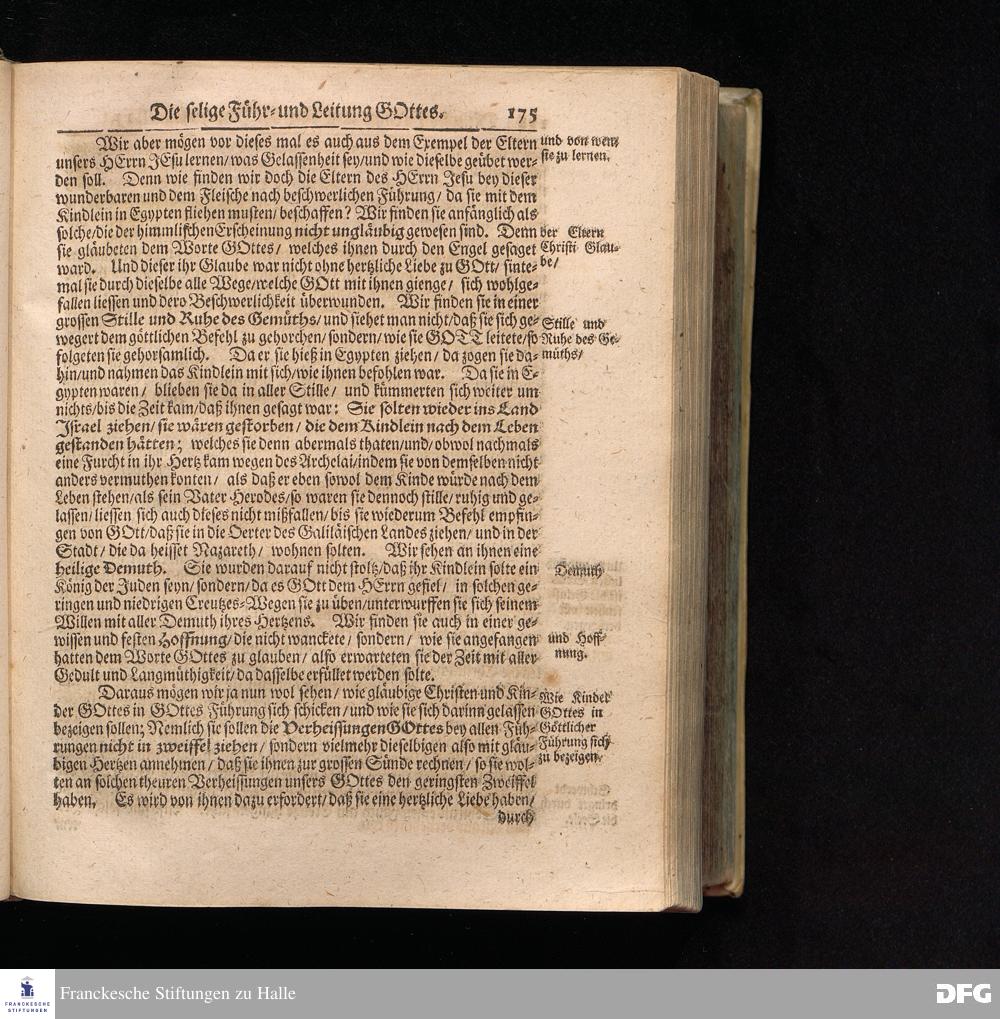 Die selige Führ- und Leitung GOttes. 175
Wir aber mögen vor dieses mal es auch aus dem Exempel der Eltern
unsers HErrn JEsu lernen/ was Gelassenheit sey/ und wie dieselbe geübet wer-
den soll. Denn wie finden wir doch die Eltern des HErrn Jesu bey dieser
wunderbaren und dem Fleische nach beschwerlichen Führung/ da sie mit dem
Kindlein in Egypten fliehen musten/ beschaffen? Wir finden sie anfänglich als
solche/ die der himmlischen Erscheinung nicht ungläubig gewesen sind. Denn
sie gläubeten dem Worte GOttes/ welches ihnen durch den Engel gesaget
ward. Und dieser ihr Glaube war nicht ohne hertzliche Liebe zu GOtt/ sinte-
mal sie durch dieselbe alle Wege/ welche GOtt mit ihnen gienge/ sich wohlge-
fallen liessen und dero Beschwerlichkeit überwunden. Wir finden sie in einer
grossen Stille und Ruhe des Gemüths/ und siehet man nicht/ daß sie sich ge-
wegert dem göttlichen Befehl zu gehorchen/ sondern/ wie sie GOTT leitete/ so
folgeten sie gehorsamlich. Da er sie hieß in Egypten ziehen/ da zogen sie da-
hin/ und nahmen das Kindlein mit sich/ wie ihnen befohlen war. Da sie in E-
gypten waren/ blieben sie da in aller Stille/ und kümmerten sich weiter um
nichts/ bis die Zeit kam/ daß ihnen gesagt war: Sie solten wieder ins Land
Israel ziehen/ sie wären gestorben/ die dem Kindlein nach dem Leben
gestanden hätten; welches sie denn abermals thaten/ und/ obwol nachmals
eine Furcht in ihr Hertz kam wegen des Archelai/ indem sie von demselben nicht
anders vermuthen konten/ als daß er eben sowol dem Kinde würde nach dem
Leben stehen/ als sein Vater Herodes/ so waren sie dennoch stille/ ruhig und ge-
lassen/ liessen sich auch dieses nicht mißfallen/ bis sie wiederum Befehl empfin-
gen von GOtt/ daß sie in die Oerter des Galiläischen Landes ziehen/ und in der
Stadt/ die da heisset Nazareth/ wohnen solten. Wir sehen an ihnen eine
heilige Demuth. Sie wurden darauf nicht stoltz/ daß ihr Kindlein solte ein
König der Juden seyn/ sondern/ da es GOtt dem HErrn gefiel/ in solchen ge-
ringen und niedrigen Creutzes-Wegen sie zu üben/ unterwurffen sie sich seinem
Willen mit aller Demuth ihres Hertzens. Wir finden sie auch in einer ge-
wissen und festen Hoffnung/ die nicht wanckete/ sondern/ wie sie angefangen
hatten dem Worte GOttes zu glauben/ also erwarteten sie der Zeit mit aller
Gedult und Langmüthigkeit/ da dasselbe erfüllet werden solte.
Daraus mögen wir ja nun wol sehen/ wie gläubige Christen und Kin-
der GOttes in GOttes Führung sich schicken/ und wie sie sich darinn gelassen
bezeigen sollen; Nemlich sie sollen die Verheissungen GOttes bey allen Füh-
rungen nicht in zweiffel ziehen/ sondern vielmehr dieselbigen also mit gläu-
bigen Hertzen annehmen/ daß sie ihnen zur grossen Sünde rechnen/ so sie wol-
ten an solchen theuren Verheissungen unsers GOttes den geringsten Zweiffel
haben. Es wird von ihnen dazu erfordert/ daß sie eine hertzliche Liebe haben/
durch
und von wem
sie zu lernen.
der Eltern
Christi Glau-
be/
Stille und
Ruhe des Ge-
müths/
Demuth
und Hoff-
nung.
Wie Kinder
GOttes in
Göttlicher
Führung sich
zu bezeigen.
FRANCKESCHE
STIFTUNGEN
Franckesche Stiftungen zu Halle
DFG